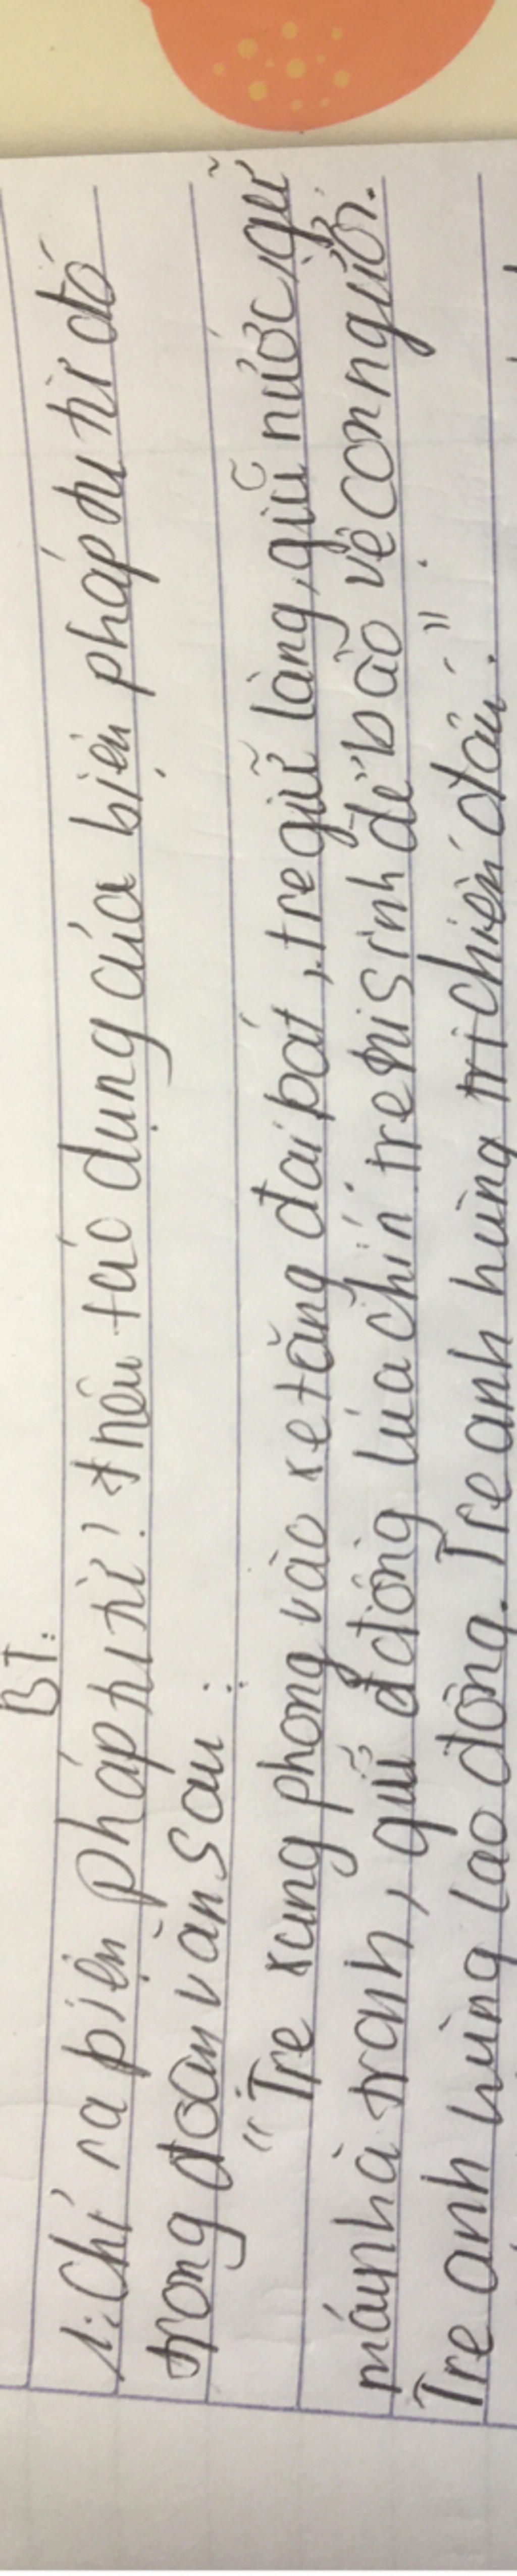 BT:
1: Chỉ ra biện pháp tu từ! nêu tác dụng của biện pháp tu từ đó
trong đoạn văn sau:
"Tre xung phong vào xe tăng đại bát, tre giữ làng, giữ nước, giữ
mái nhà tranh, giữ đồng lúa chín tre hi sinh để bảo vệ con người.
Tre anh hùng lao động. Tre anh hùng tri chiến đấu."